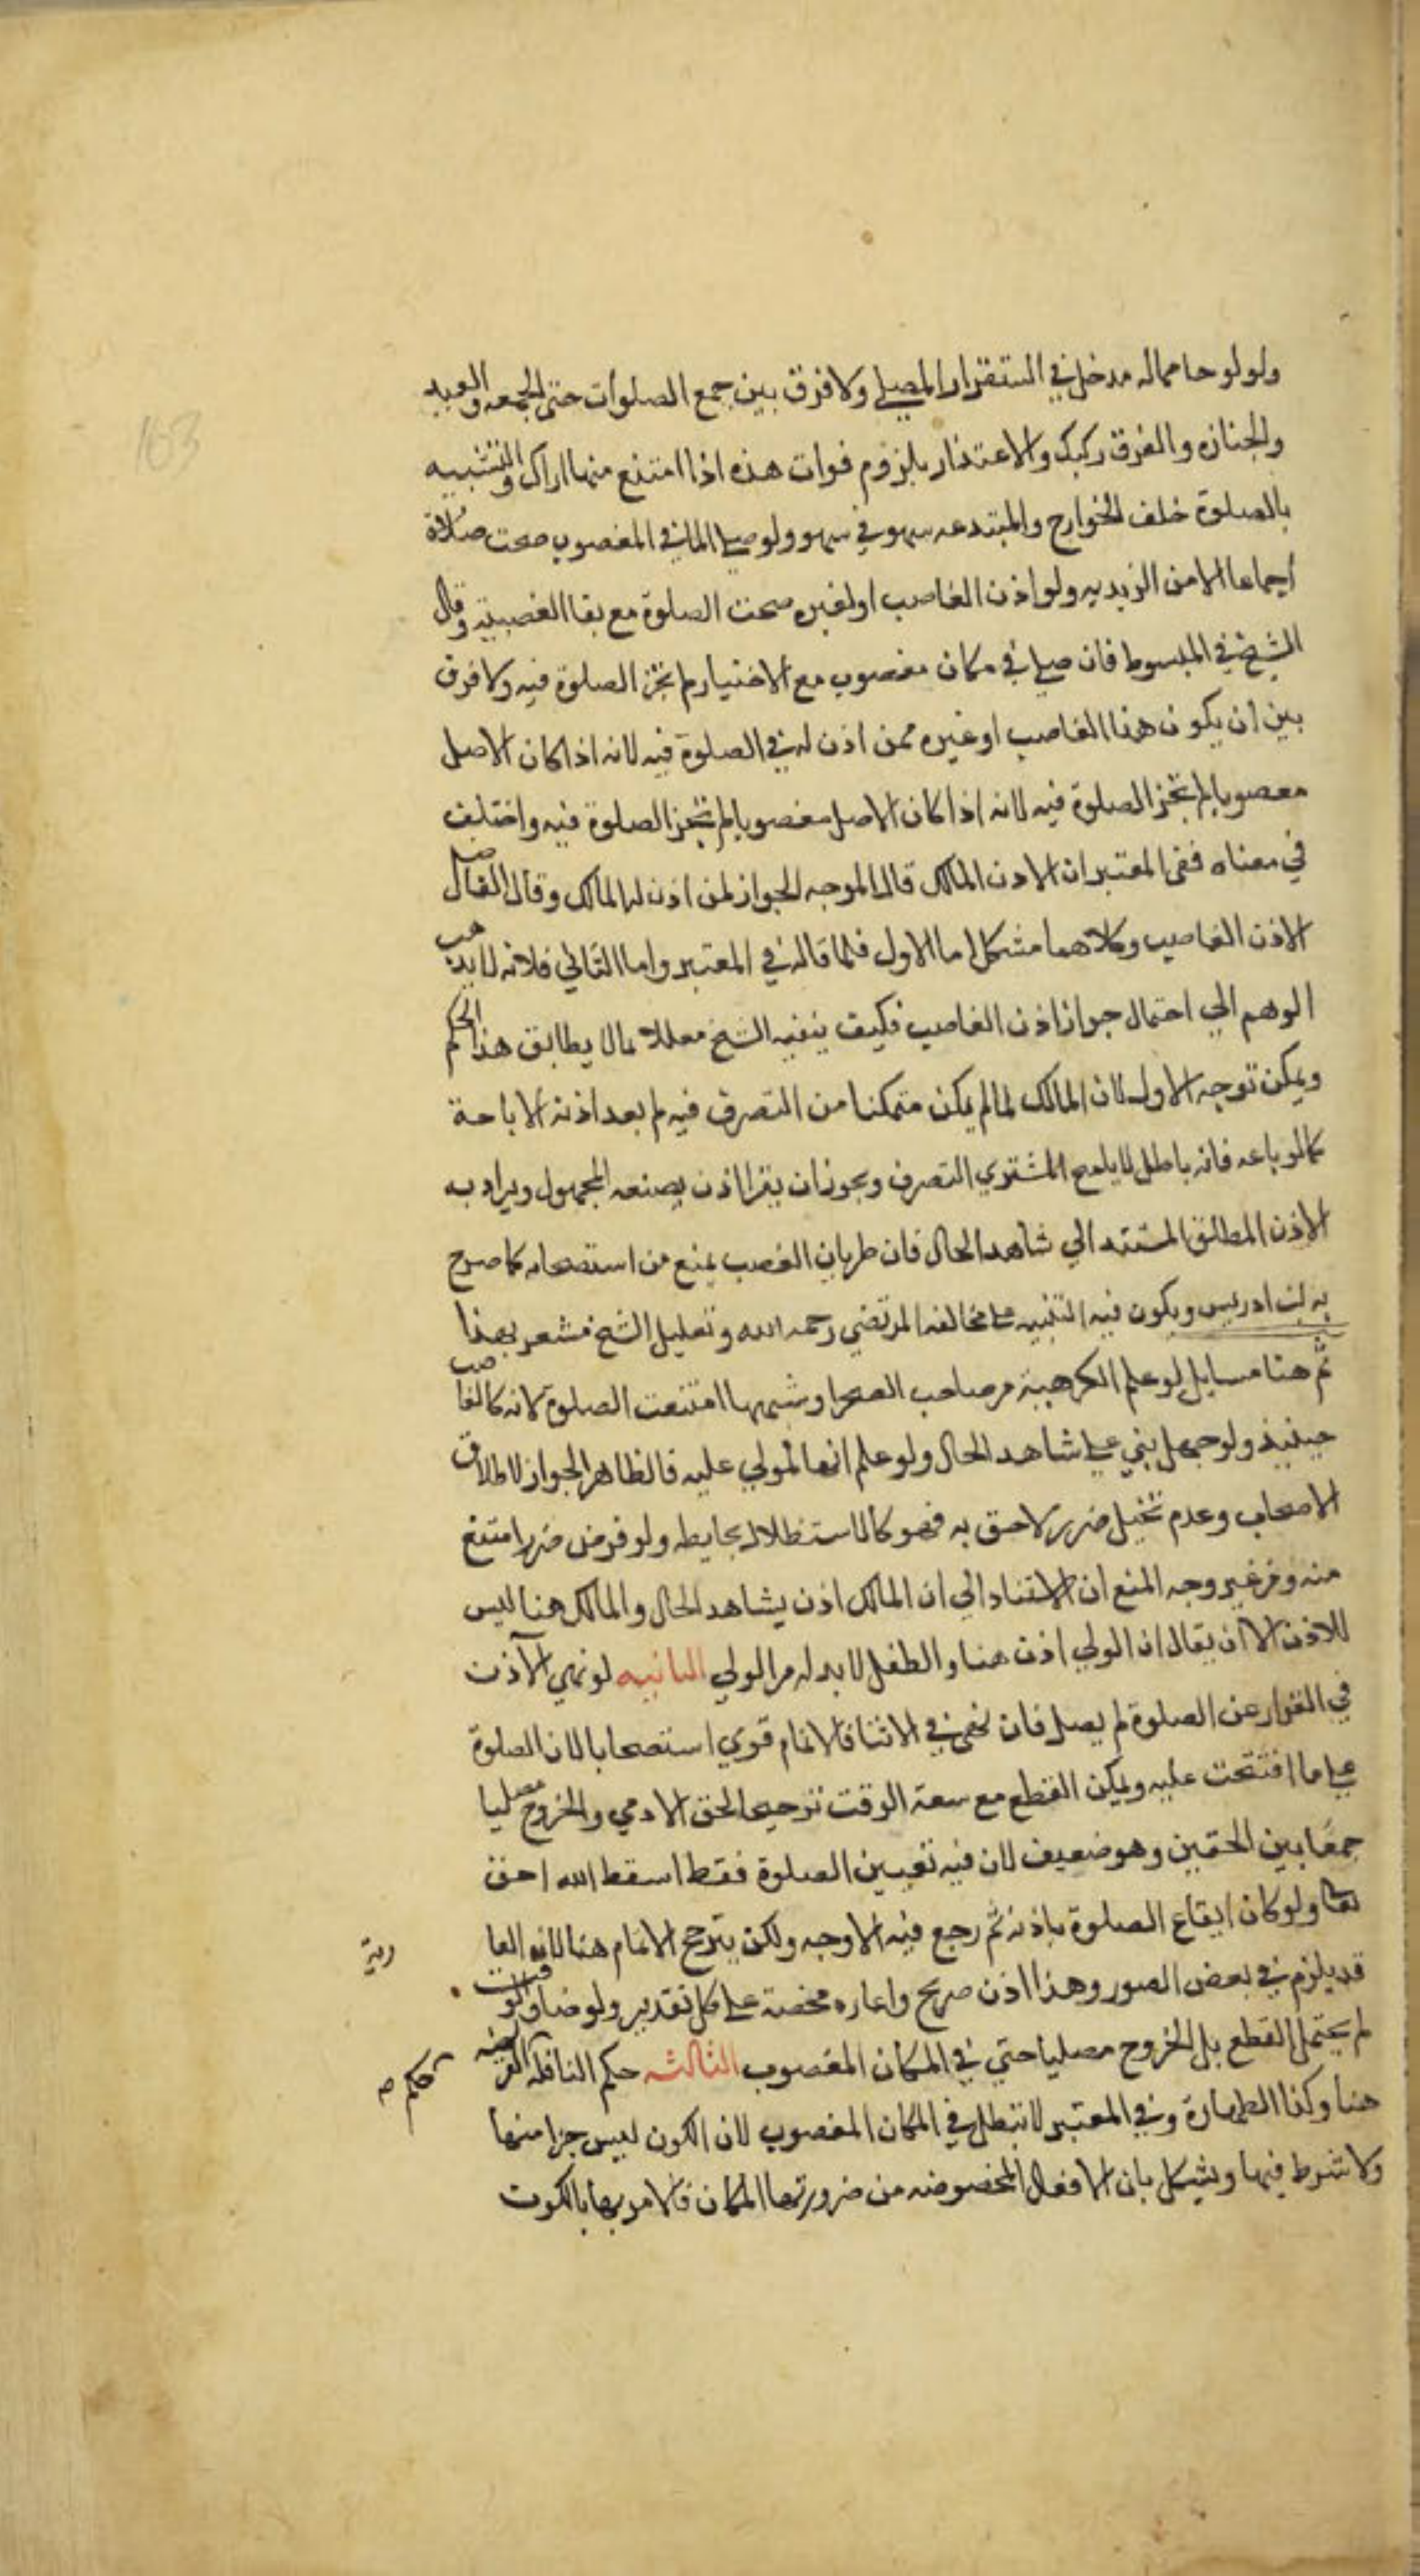 ولو لوحا مماله مدخل في استقرار المصلي ولا فرق بين جمع الصلوات حتى الجمعه والعيد
والجنازه والفرق ركيك والاعتذار بلزوم فوات هذه اذا امتنع منها اراك والتشبيه
بالصلوة خلف الخوارج والمبتدعه سهو في سهو ولو صلى المالك في المغصوب صحت صلاة
اجماعا الا من الزيديه ولو اذن الغاصب او لغيره صحت الصلوة مع بقا الغصبية وقال
الشيخ في المبسوط فان صلى في مكان مغصوب مع الاختيار لم تجز الصلوة فيه ولا فرق
بين ان يكون هذا الغاصب او غيره ممن اذن له في الصلوة فيه لانه اذا كان الاصل
معصوبا لم تجز الصلوة فيه لانه اذا كان الاصل مغصوبا لم تجز الصلوة فيه واختلف
في معناه ففي المعتبر ان الاذن المالك قال الموجه الجواز لمن اذن له المالك وقال الفاصل
الاذن الغاصب وكلاهما مشكل اما الاول فلما قاله في المعتبر واما الثاني فلانه لا يذهب
الوهم الي احتمال جواز اذن الغاصب فكيف ينفيه الشيخ معللا بما لا يطابق هذا الحكم
ويمكن توجيه الاول لان المالك لما لم يكن متمكنا من التصرف فيه لم يعد اذنه الاباحة
كما لو باعه فانه باطل لا يبيح المشتري التصرف ويجوز ان يقرا اذن بصنعه المجهول ويراد به
الاذن المطلق المستند الي شاهد الحال فان طريان الغصب يمنع من استصحابه كما صرح
به ابن ادريس ويكون فيه التنبيه على مخالفه المرتضي رحمه الله وتعليل الشيخ مشعر بهذا
ثم هنا مسايل لو علم الكرهية من صاحب الصحرا وشبهها امتنعت الصلوة لانه كالغاصب
حينيذ ولو جهل بني على شاهد الحال ولو علم انها لمولي عليه فالظاهر الجواز لاطلاق
الاصحاب وعدم تخيل ضرر لاحق به فهو كالاستظلال بحايطه ولو فرض ضرر امتنع
منه ومن غيره وجه المنع ان الاستناد الي ان المالك اذن بشاهد الحال والمالك هنا ليس
للاذن الا ان يقال ان الولي اذن هنا والطفل لا بد له من الولي الثانيه لو نهي الآذن
في القرار عن الصلوة لم يصل فان نهى في الاثنا فالاتمام قوي استصحابا لان الصلوة
على ما افتتحت عليه ويمكن القطع مع سعة الوقت ترجيحا لحق الادمي والخروج مصليا
جمعا بين الحقين وهو ضعيف لان فيه تغيير الصلوة فقط اسقط الله احق
نعم ولو كان ايقاع الصلوة باذنه ثم رجع فيه الاوجه ولكن يترجح الاتمام هنا لان العا
رية
قد يلزم في بعض الصور وهذا اذن صريح واعاره مختصة على كل تقدير ولو ضاق الوقت
لم يحتمل القطع بل الخروج مصليا حتي في المكان المغصوب الثالثه حكم النافله الفريضه
كحكم صح
هنا وكذا الطهارة وفي المعتبر لا تبطل في المكان المغصوب لان الكون ليس جزا منها
ولا شرط فيها ويشكل بان الافعال المخصوصه من ضرورتها المكان فالامر بها بالكون